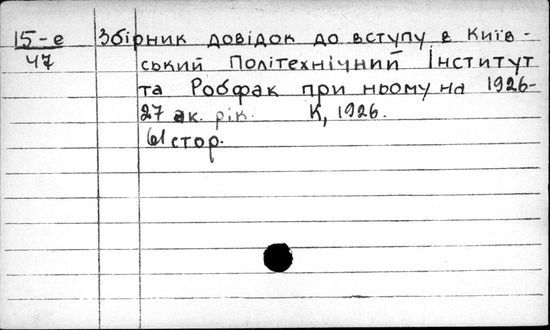 15-е Збірник довідок до вступу в Київ-
47 ський Політехнічний Інститут
та Робфак при ньому на 1926-
27 ак. рік. К, 1926.
61 стор.